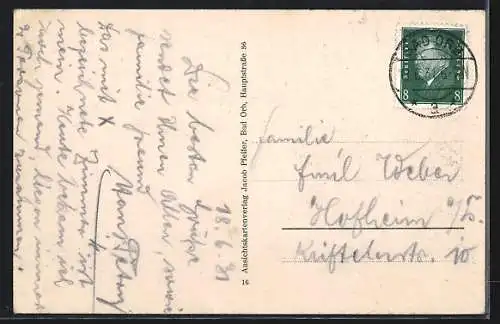 18.6.31
Die besten Grüße
sendet Ihnen Allen, sowie
Familie
Das mit X
bezeichnete Zimmer ist
mein. Heute bekam ich
noch jemand, liegen immer
2 Personen zusammen.
Ansichtskartenverlag Jacob Pfeifer, Bad Orb, Hauptstraße 36
16
BAD ORB
8 8
Familie
Emil Weber
Hofheim a/Ts.
10